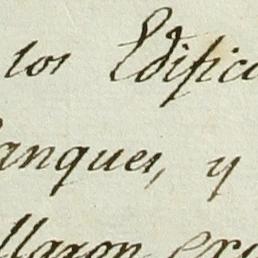 los Edifici
anques, y
llaron exa